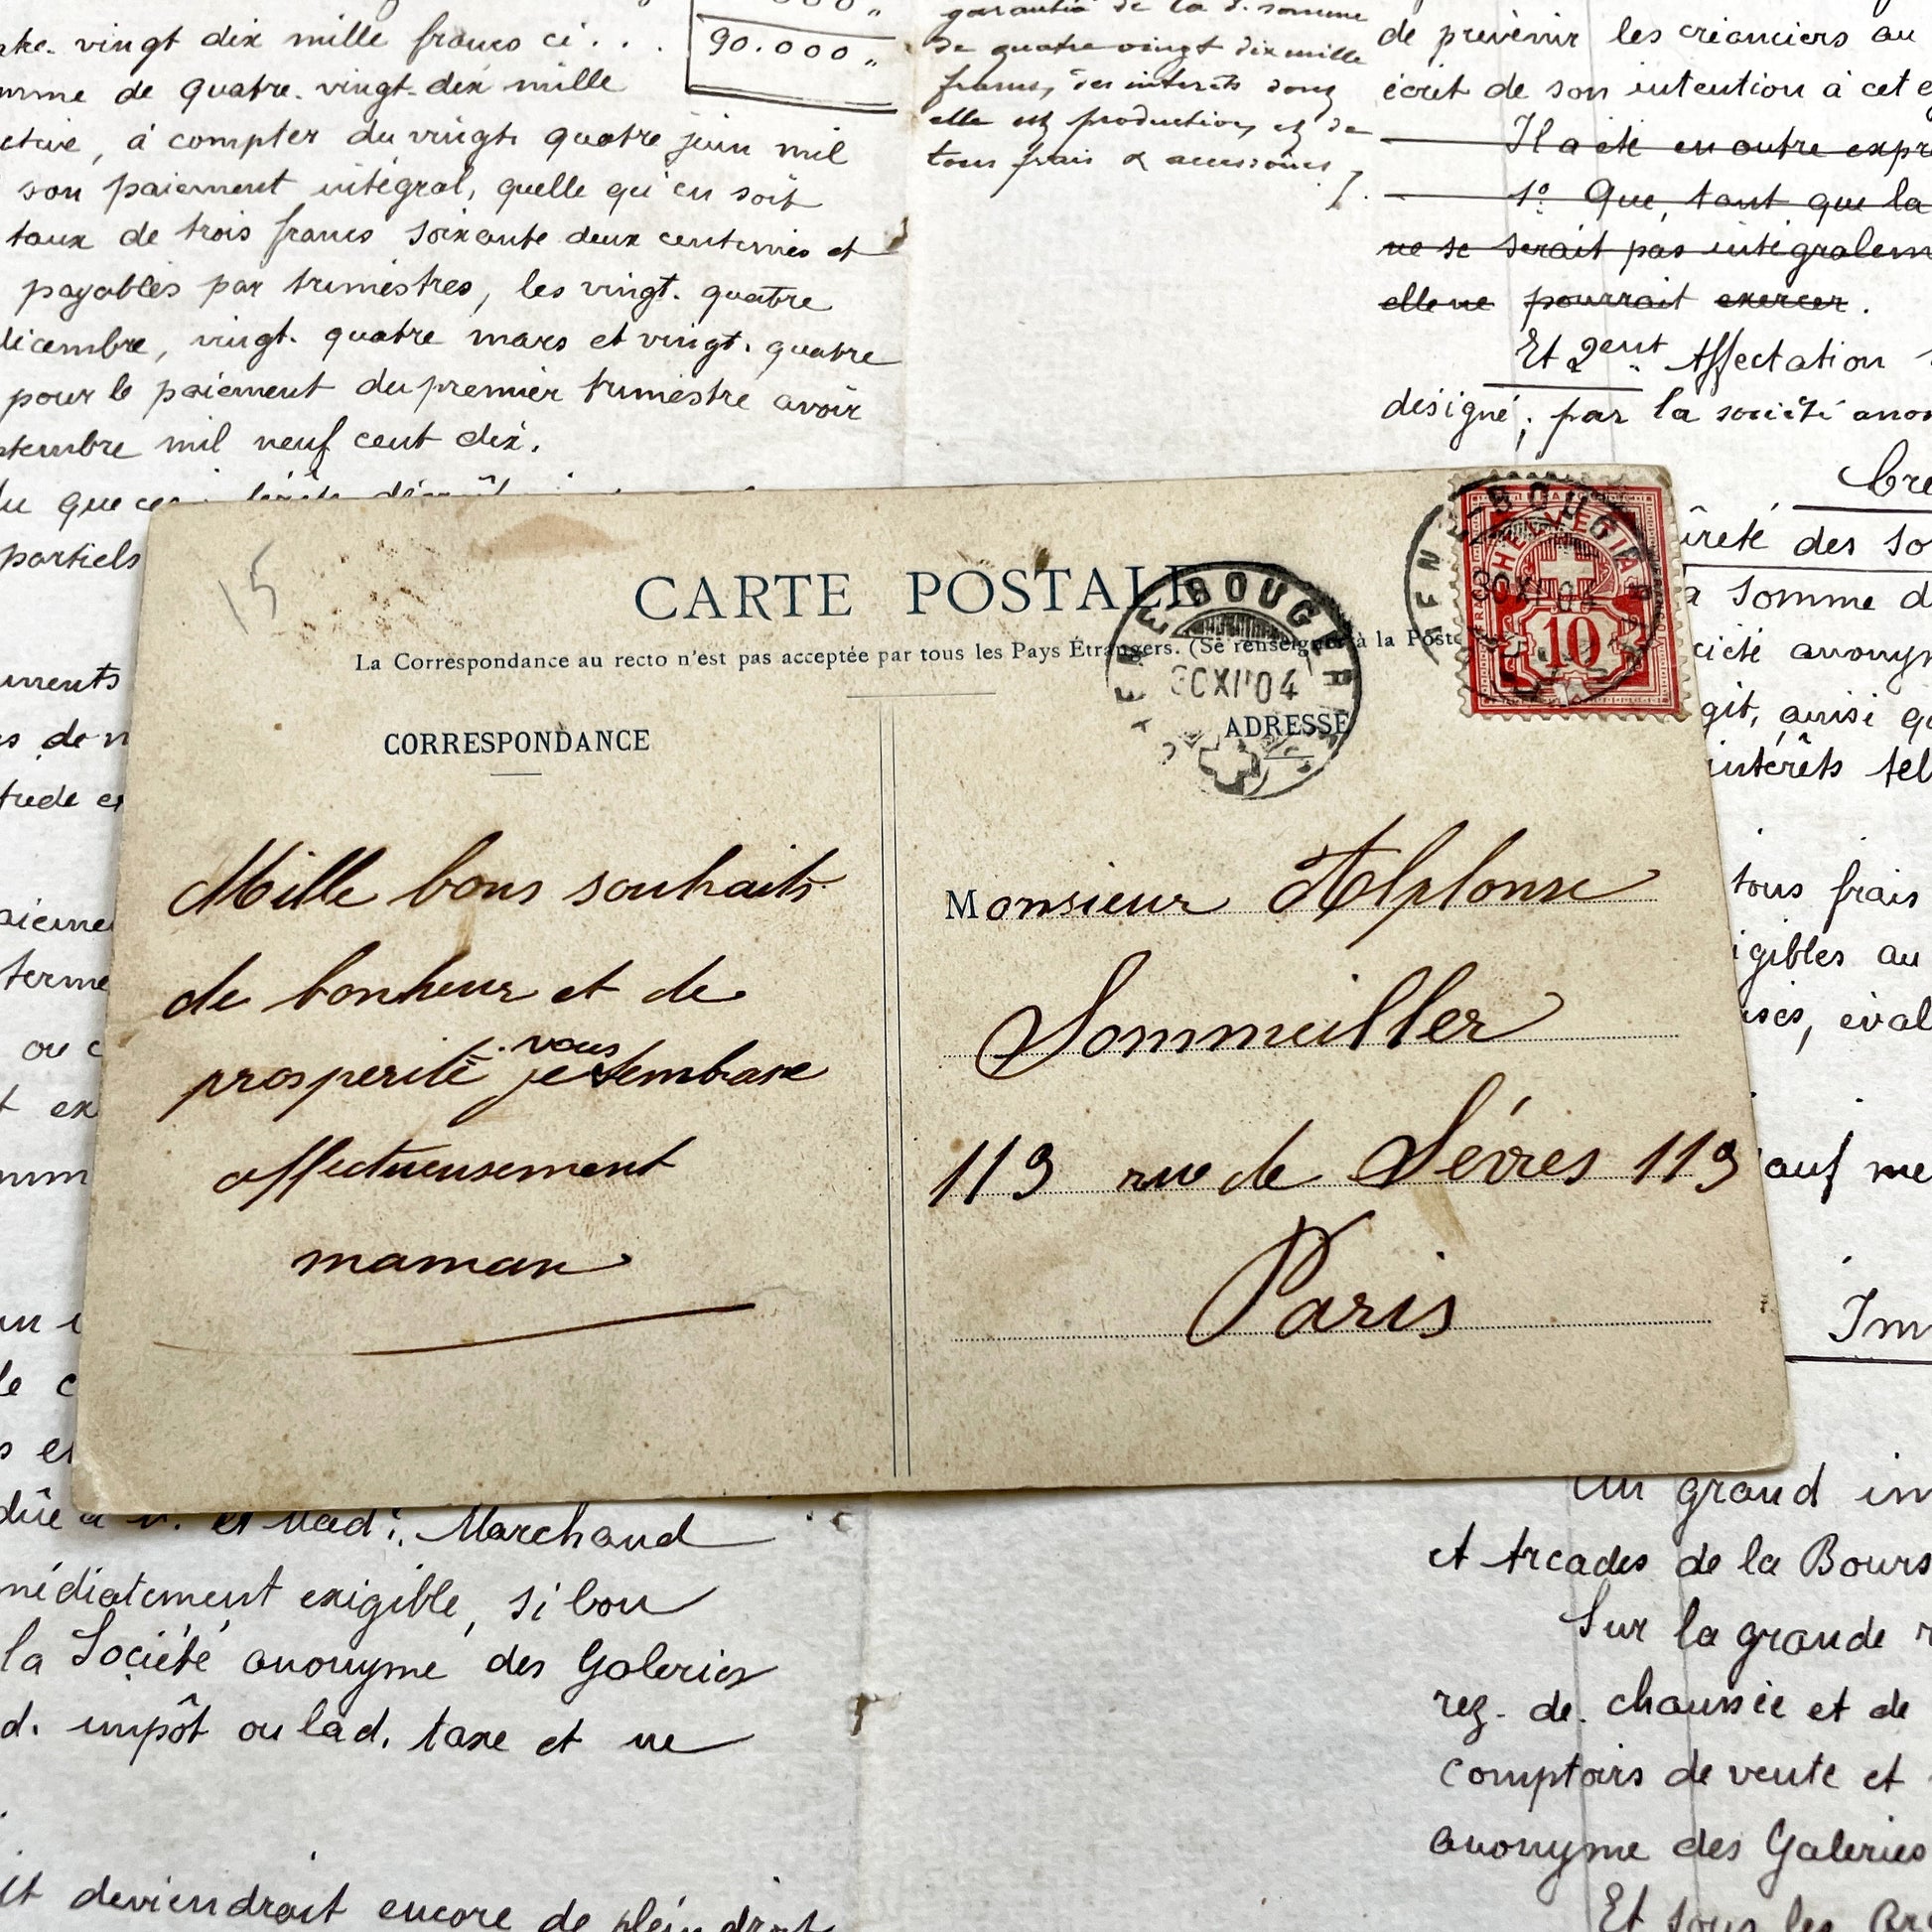 vingt dix mille francs ci . . .
90.000 "
de quatre-vingt-dix mille
, à compter du vingt quatre juin mil
son paiement intégral, quelle qu'en soit
taux de trois francs soixante deux centimes et
payables par trimestres, les vingt. quatre
, vingt. quatre mars et vingt. quatre
pour le paiement du premier trimestre avoir
mil neuf cent dix.
que ces
partiels
garantie de la d. somme
de quatre vingt dix mille
francs, des intérêts dont
elle est production, et de
tous frais & accessoires
de prévenir les créanciers au
écrit de son intention à cet
Il a été en outre
1º Que, tant que la
ne se serait pas
elle ne pourrait exercer.
Et 2ent. Affectation
désigné, par la société
des
somme
ainsi
intérêts
CARTE POSTALE
La Correspondance au recto n'est pas acceptée par tous les Pays Étrangers. (Se renseigner à la Poste
CORRESPONDANCE
ADRESSE
15
BOUGERIE
30XII04
HELVETIA
10
BOUGERIE
30XII04
Mille bons souhaits
de bonheur et de
prosperité je vous embrasse
affectueusement
maman
Monsieur Alphonse
Sommeiller
119 rue de Sèvres 119
Paris
tous frais
au
ou
et Mad. Marchand
exigible, si bon
la Société anonyme des Galeries
d. impôt ou lad. taxe et ne
deviendrait encore de plein droit
Un grand
et Arcades de la
Sur la grande
rez-de-chaussée et de
comptoirs de vente et
anonyme des Galeries
Et sous les